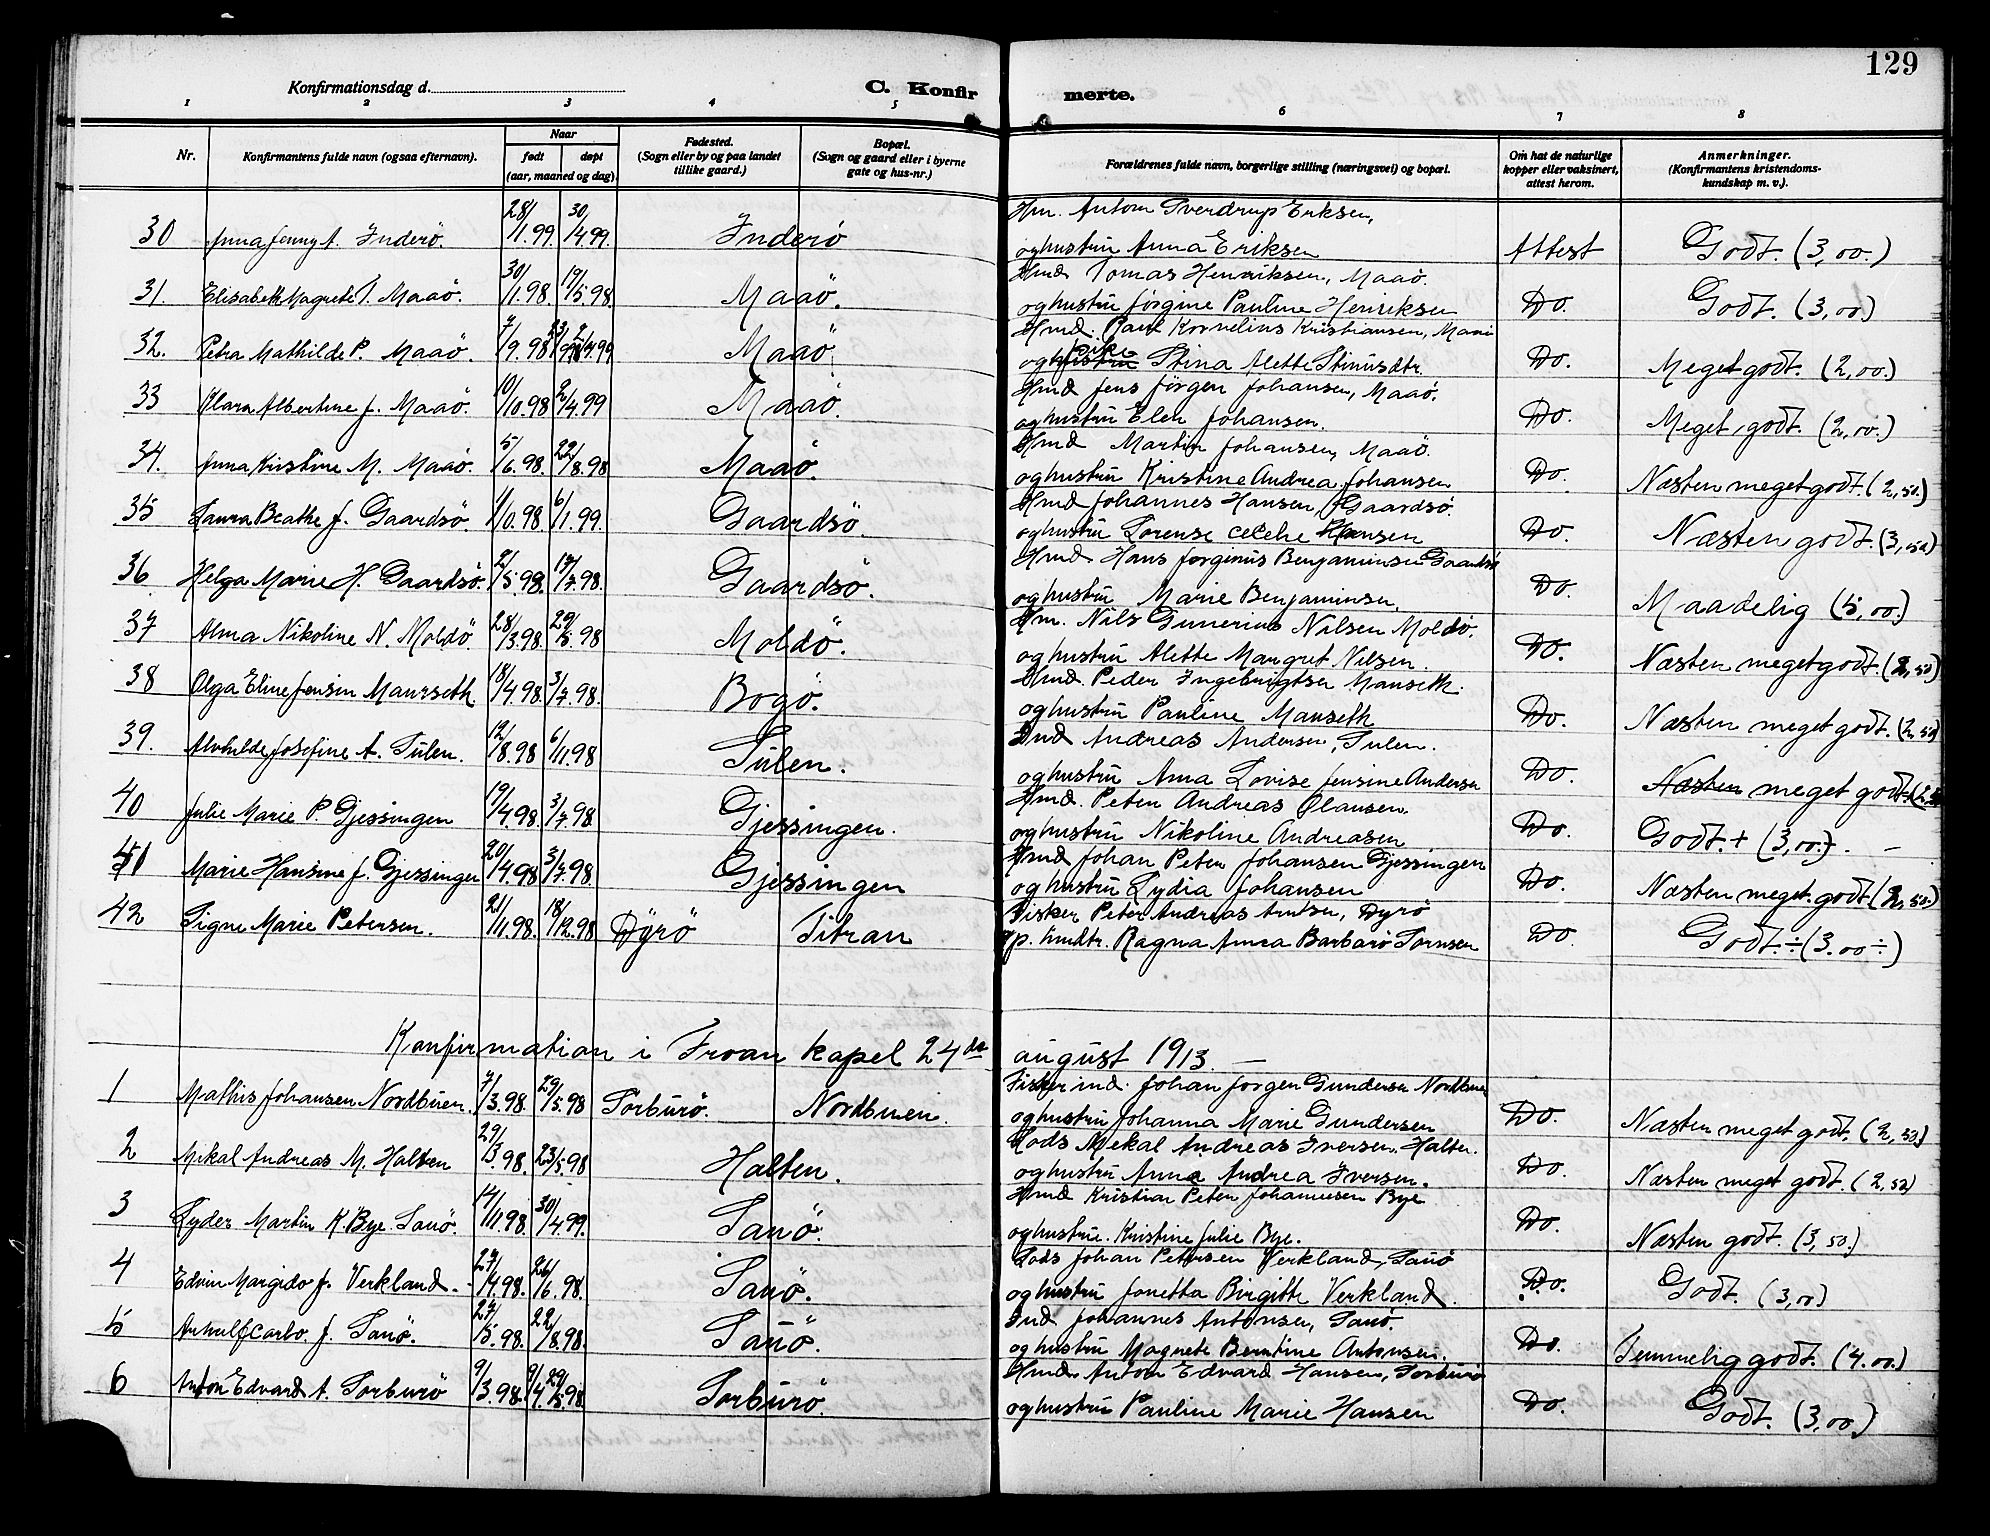 129
Konfirmationsdag d.
C. Konfirmerte.
1 2 3 4 5 6 7 8
Nr. Konfirmantens fulde navn (ogsaa efternavn). Naar født døpt (aar, maaned og dag). Fødested. (Sogn eller by og paa landet tillike gaard.) Bopæl. (Sogn og gaard eller i byerne gate og hus-nr.) Forældrenes fulde navn, borgerlige stilling (næringsvei) og bopæl. Om hat de naturlige kopper eller vaksinert, attest herom. Anmerkninger. (Konfirmantens kristendomskundskap m. v.).
Hm. Anton Sverdrup Eriksen,
30 Anna Jenny A. Inderö. 28/1.99. 30/4.99. Inderö og hustru Anna Eriksen Attest Godt. (3,00.)
Hmd. Tomas Henriksen, Maaö.
31 Elisabeth Magrete T. Maaö. 30/1.98. 19/5.98. Maaö. og hustru Jörgine Pauline Henriksen Do. Godt. (3,00.)
Hmd. Paul Kornelius Kristiansen, Maaö
32. Petra Mathilde P. Maaö. 7/9.98 2/4.99 Maaö. og pike Stina Alette Stinusdtr. Do. Meget godt. (2,00.)
Hmd Jens Jörgen Johansen, Maaö.
33 Klara Albertine J. Maaö. 10/10.98 2/4.99 Maaö. og hustru Elen Johansen. Do. Meget godt. (2,00.)
Hmd Martin Johansen, Maaö.
34. Anna Kristine M. Maaö. 5/6.98. 22/8.98 Maaö. og hustru Kristine Andrea Johansen Do. Næsten meget godt. (2,50.)
Hmd Johannes Hansen, Gaardsö.
35 Laura Beathe J. Gaardsö 1/10.98 6/1.99. Gaardsö. og hustru Lorense Hansen Do. Næsten godt. (3,50)
Hmd. Hans Jorginus Benjaminsen Gaardsö
36. Helga Marie H. Gaardsö. 2/5.98. 17/7.98. Gaardsö. og hustru Marie Benjaminsen. Do. Maadelig (5,00.)
Hm. Nils Gunerius Nilsen Moldö.
37 Alma Nikoline N. Moldö. 28/3.98. 29/5.98 Moldö. og hustru Alette Margret Nilsen. Do. Næsten meget godt. (2,50)
Hmd. Peder Ingebrigtsen Mauseth.
38 Olga Eline Jensin Maurseth 18/4.98. 3/7.98. Bogö. og hustru Pauline Mauseth Do. Næsten meget godt. (2,50)
Ind Andreas Andersen, Sulen.
39. Alvhilde Josefine A. Sulen. 12/8.98 6/11.98 Sulen. og hustru Anna Lovise Jensine Andersen Do. Næsten meget godt.
Hmd. Peter Andreas Olausen.
40 Julie Marie P. Gjessingen 19/4.98. 3/7.98. Gjessingen. og hustru Nikoline Andreasen Do. Godt.+ (3,00.+). –
Hmd Johan Peter Johansen Gjessingen
41 Marie Hansine J. Gjessingen 20/4.98 3/7.98. Gjessingen og hustru Lydia Johansen Do. Næsten meget godt (2,50.)
Fisker Peter Andreas Arntsen, Dyrö
42 Signe Marie Petersen. 21/11.98. 18/12.98 Dyrö Titran Ragna Anna Barbarö Sornsen Do. Godt.÷ (3.00÷)
Konfirmation i Froan kapel 24de august 1913 –
Fisker ind. Johan Jorgen Gundersen Nordbuen
1 Mathis Johansen Nordbuen. 7/3.98. 29/5.98 Sorburö. Nordbuen. og hustru Johanna Marie Gundersen Do. Næsten meget godt. (2,50)
Lods Mekal Andreas Iversen, Halten.
2 Mikal Andreas M. Halten 29/3.98. 23/5.98 Halten. og hustru Anna Andrea Iversen. Do. Næsten meget godt. (2,50)
Hmd Kristian Peter Johannesen Bye
3 Lyder Martin K. Bye. Sauö. 14/11.98. 30/4.99. Sauö. og hustru. Kristine Julie Bye. Do. Næsten godt. (3,50.)
Lods Johan Petersen Verkland, Sauö
4 Edvin Margido J. Verkland. 27/4.98. 26/6.98. Sauö. og hustru Jonetta Birgitte Verkland. Do. Godt. (3,00)
Ind Johannes Antonsen, Sauö.
5 Carbo. J. Sauö. 27/5.98. 22/8.98. Sauö. og hustru Magnete Berntine Antonsen. Do. Temmelig godt. (4.00.)
Hmd. Anton Edvard Hansen, Sorburö
6 Anton Edvard A. Sorburö 9/3.98. 29/5.98. Sorburö. og hustru Pauline Marie Hansen Do. Godt. (3,00.)